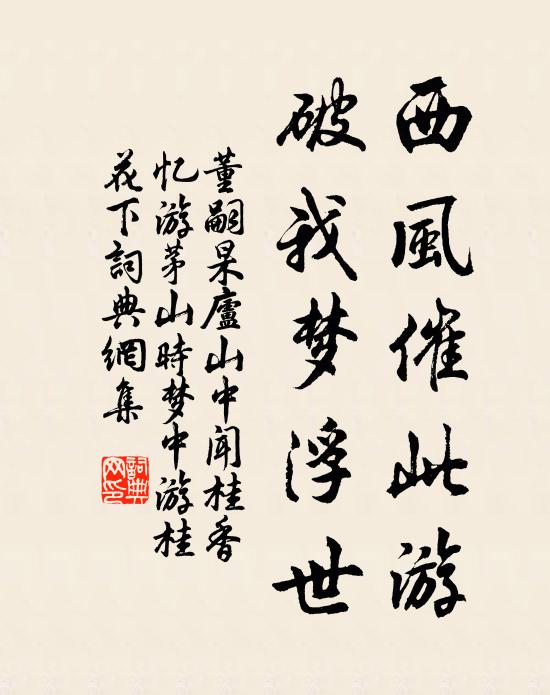 西風催此游
破我梦浮世
董嗣杲廬山中闻桂香
忆游茅山時梦中游桂
花下詞典網集
詞典
网印